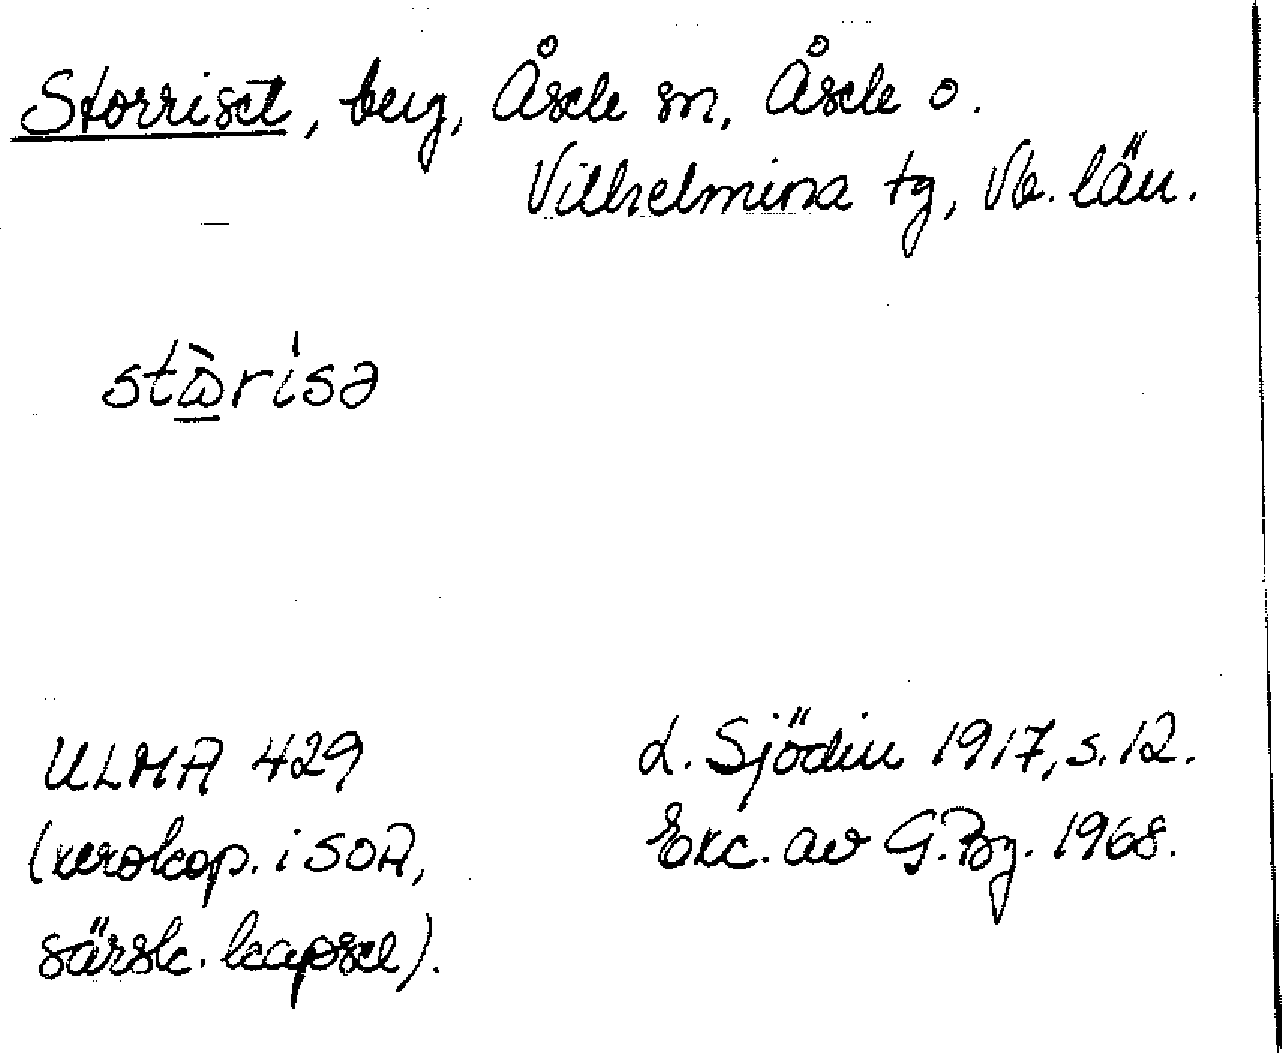 Storriset, berg, Åsele sn, Åsele o.
Vilhelmina tg, Vb. län.
stàrisə
ULMA 429
(xerokop. i SOA,
särsk. kapsel).
L. Sjödin 1917, s. 12.
Exc. av G.Bg. 1968.